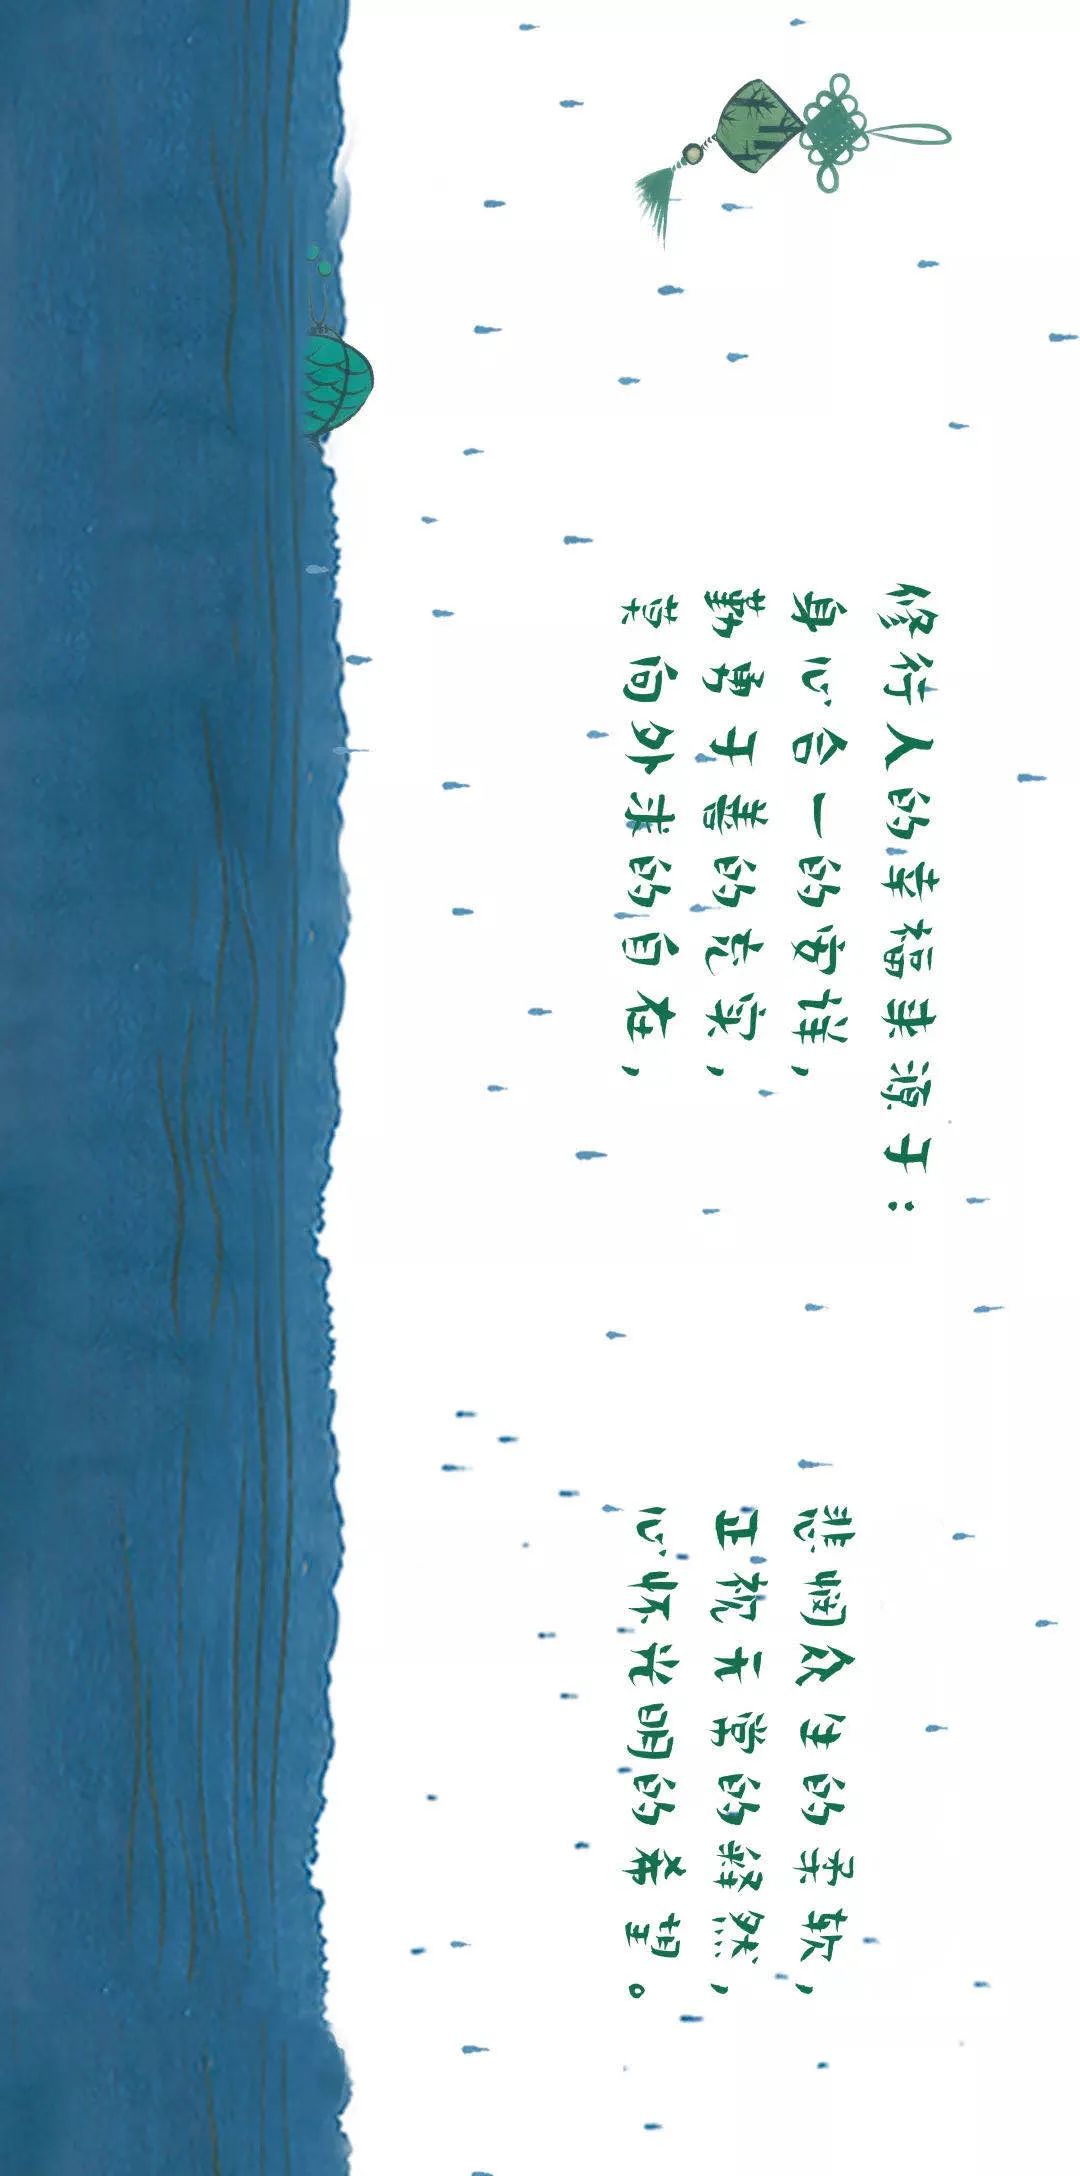 修行人的幸福来源于：
身心合一的安详，
勤勇于善的充实，
莫向外求的自在，
悲悯众生的柔软，
正视无常的释然，
心怀光明的希望。